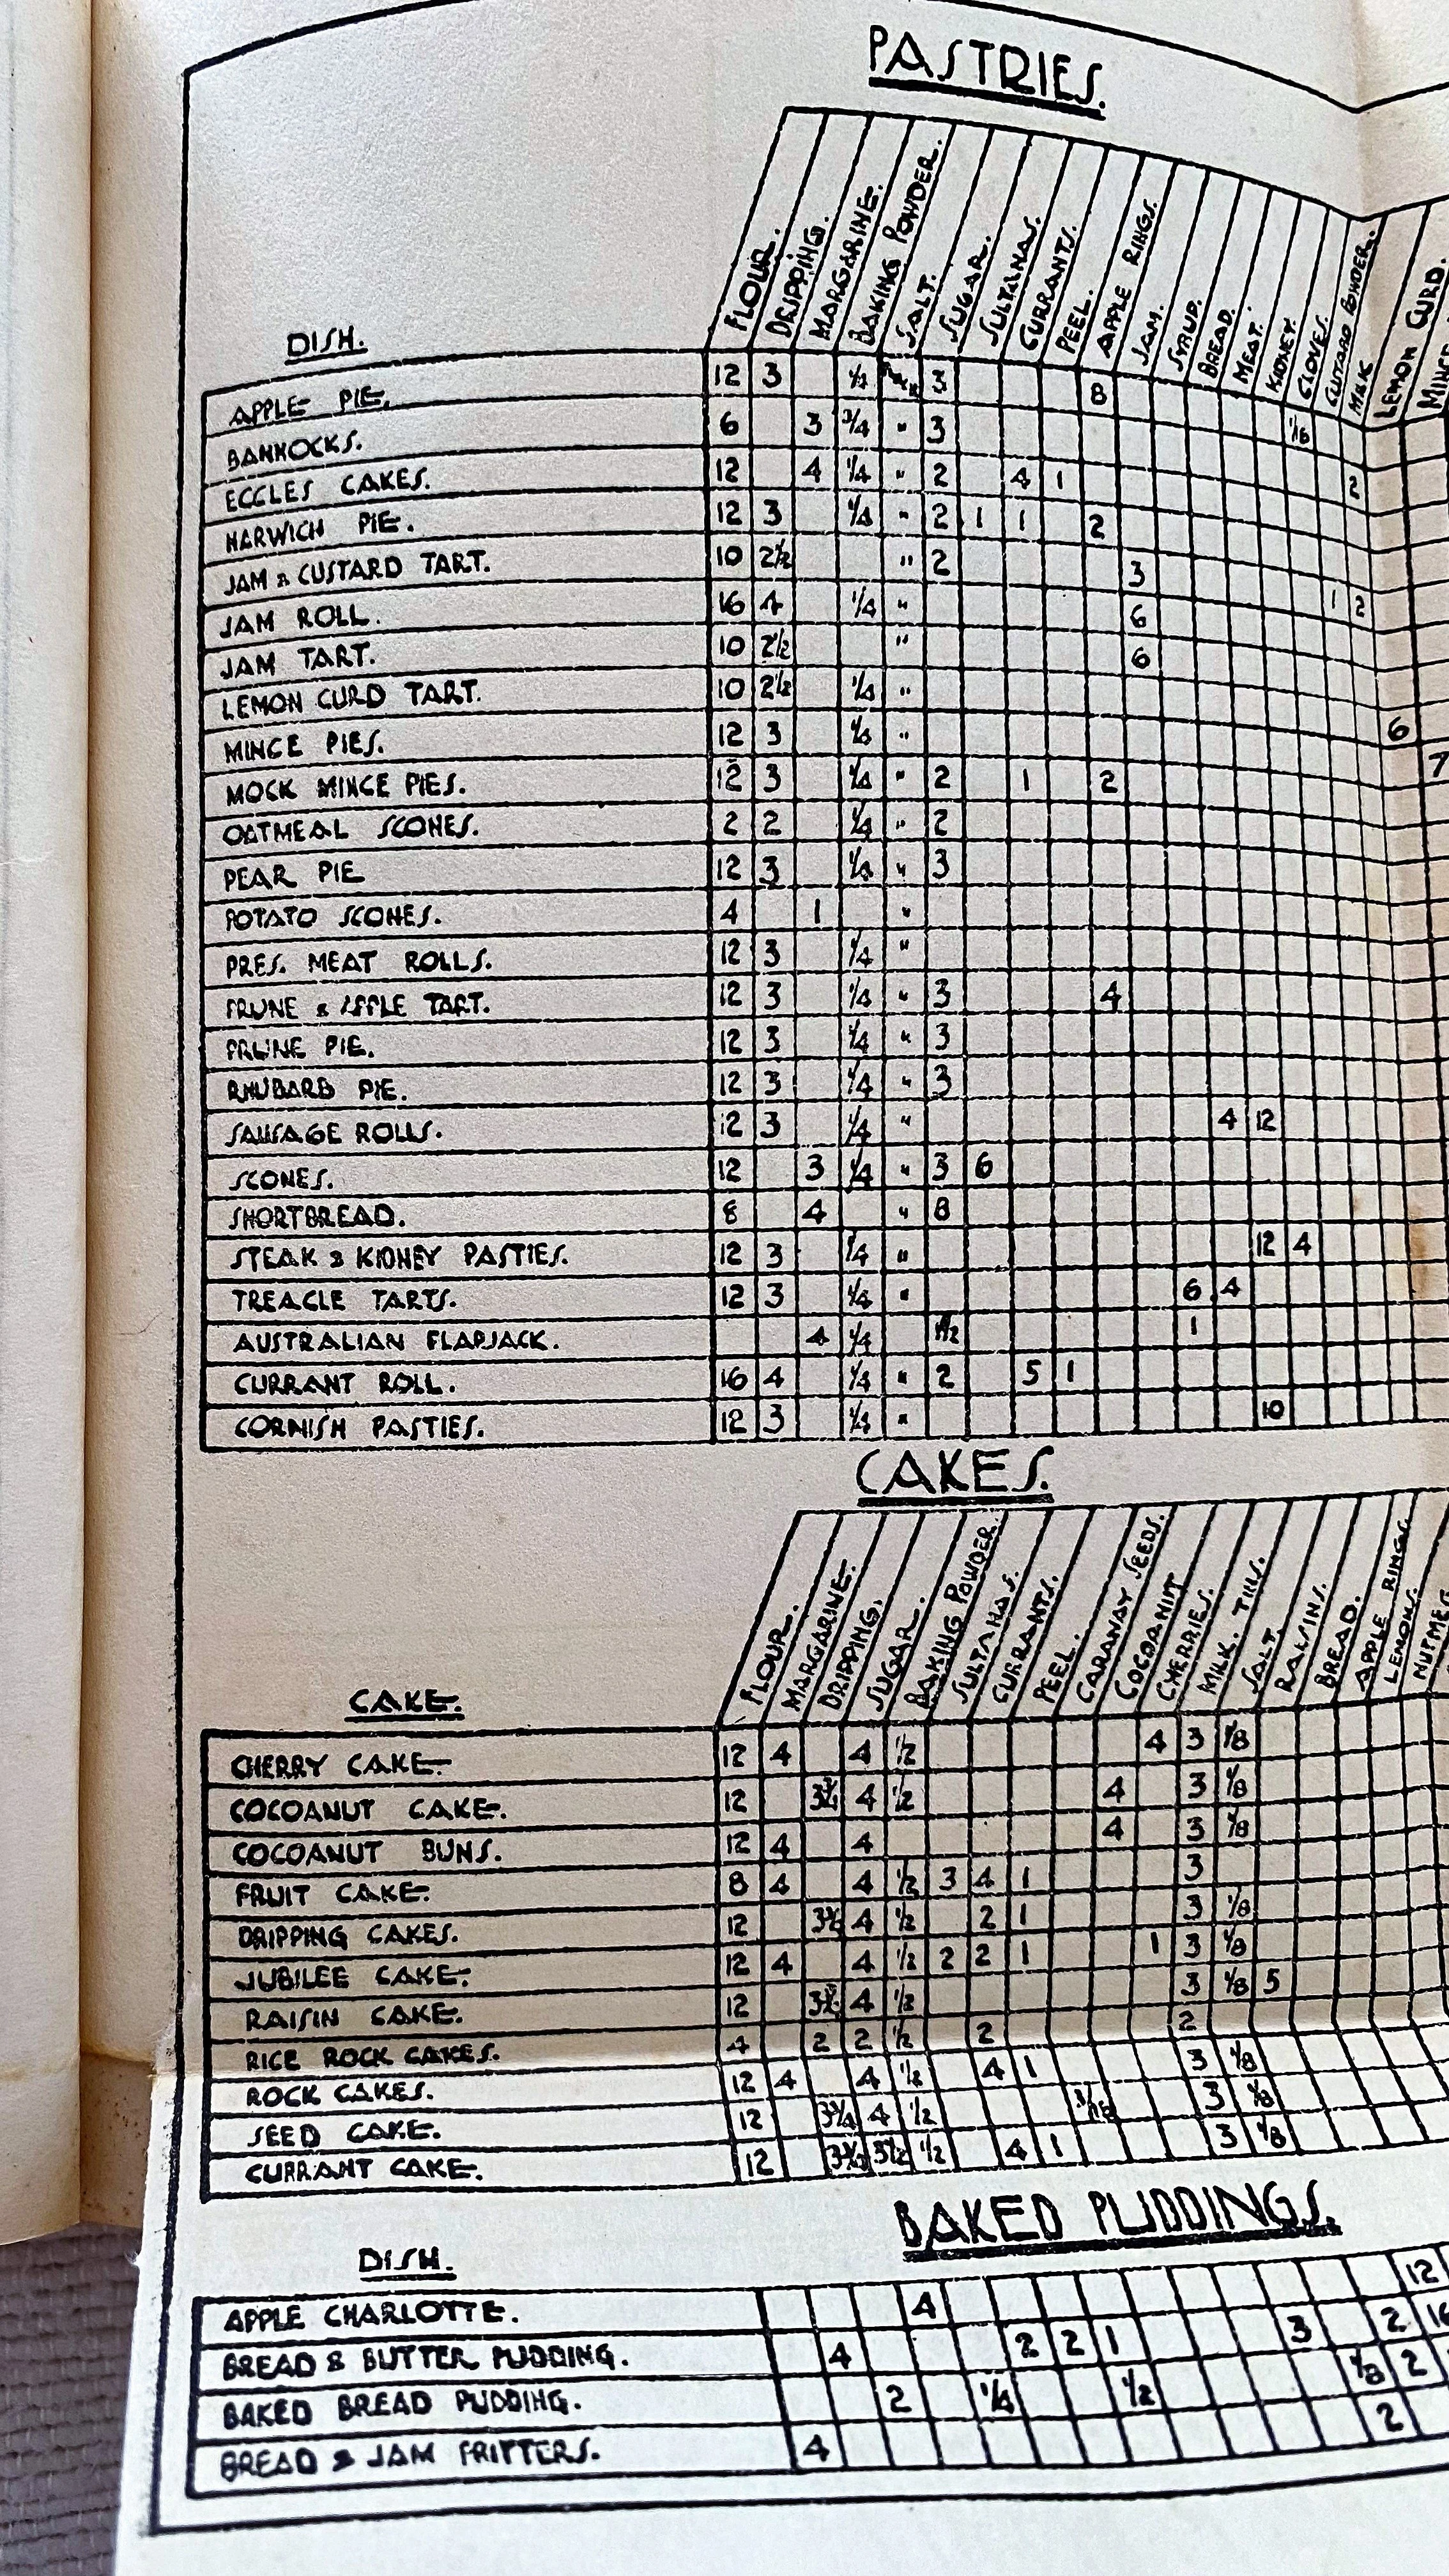 PASTRIES.
DISH. FLOUR. DRIPPING. MARGARINE. BAKING POWDER. SALT. SUGAR. SULTANAS. CURRANTS. PEEL. APPLE RINGS. JAM. SYRUP. BREAD. MEAT. KIDNEY. CLOVES. CUTARD POWDER. MILK LEMON CURD.
APPLE PIE. 12 3 1/2 3 8
BANNOCKS. 6 3 3/4 " 3 1/16
ECCLES CAKES. 12 4 1/4 " 2 4 1 2
HARWICH PIE. 12 3 1/4 " 2 1 1 2
JAM & CUSTARD TART. 10 2 1/2 " 2 3 1 2
JAM ROLL. 16 4 1/4 " 6
JAM TART. 10 2 1/2 " 6
LEMON CURD TART. 10 2 1/2 1/4 " 6
MINCE PIES. 12 3 1/4 " 7
MOCK MINCE PIES. 12 3 1/4 " 2 1 2
OATMEAL SCONES. 2 2 1/4 " 2
PEAR PIE 12 3 1/4 " 3
POTATO SCONES. 4 1 "
PRES. MEAT ROLLS. 12 3 1/4 "
PRUNE & APPLE TART. 12 3 1/4 " 3 4
PRUNE PIE. 12 3 1/4 " 3
RHUBARB PIE. 12 3 1/4 " 3
SAUSAGE ROLLS. 12 3 1/4 " 4 12
SCONES. 12 3 1/4 " 3 6
SHORTBREAD. 8 4 " 8
STEAK & KIDNEY PASTIES. 12 3 1/4 " 12 4
TREACLE TARTS. 12 3 1/4 " 6 4
AUSTRALIAN FLAPJACK. 4 1/4 1
CURRANT ROLL. 16 4 1/4 " 2 5 1
CORNISH PASTIES. 12 3 1/4 " 10
CAKES.
CAKE. FLOUR. MARGARINE. DRIPPING. SUGAR. BAKING POWDER. SULTANAS. CURRANTS. PEEL. CARAWAY SEEDS. COCOANUT CHERRIES. MILK. TINS. SALT. RAISINS. BREAD. APPLE RINGS. LEMONS.
CHERRY CAKE. 12 4 4 1/2 4 3 1/8
COCOANUT CAKE. 12 3 3/4 4 1/2 4 3 1/8
COCOANUT BUNS. 12 4 4 4 3 1/8
FRUIT CAKE. 8 4 4 1/2 3 4 1 3
DRIPPING CAKES. 12 3 3/4 4 1/2 2 1 3 1/8
JUBILEE CAKE. 12 4 4 1/2 2 2 1 1 3 1/8
RAISIN CAKE. 12 3 3/4 4 1/2 3 1/8 5
RICE ROCK CAKES. 4 2 2 1/2 2 2
ROCK CAKES. 12 4 4 1/2 4 1 3 1/8
SEED CAKE. 12 3 3/4 4 1/2 3/16 3 1/8
CURRANT CAKE. 12 3 3/4 3 1/2 1/2 4 1 3 1/8
BAKED PUDDINGS.
DISH.
APPLE CHARLOTTE. 4 12
BREAD & BUTTER PUDDING. 4 2 2 1 3 2 16
BAKED BREAD PUDDING. 2 1/4 1/2 1/8 2
BREAD & JAM FRITTERS. 4 2